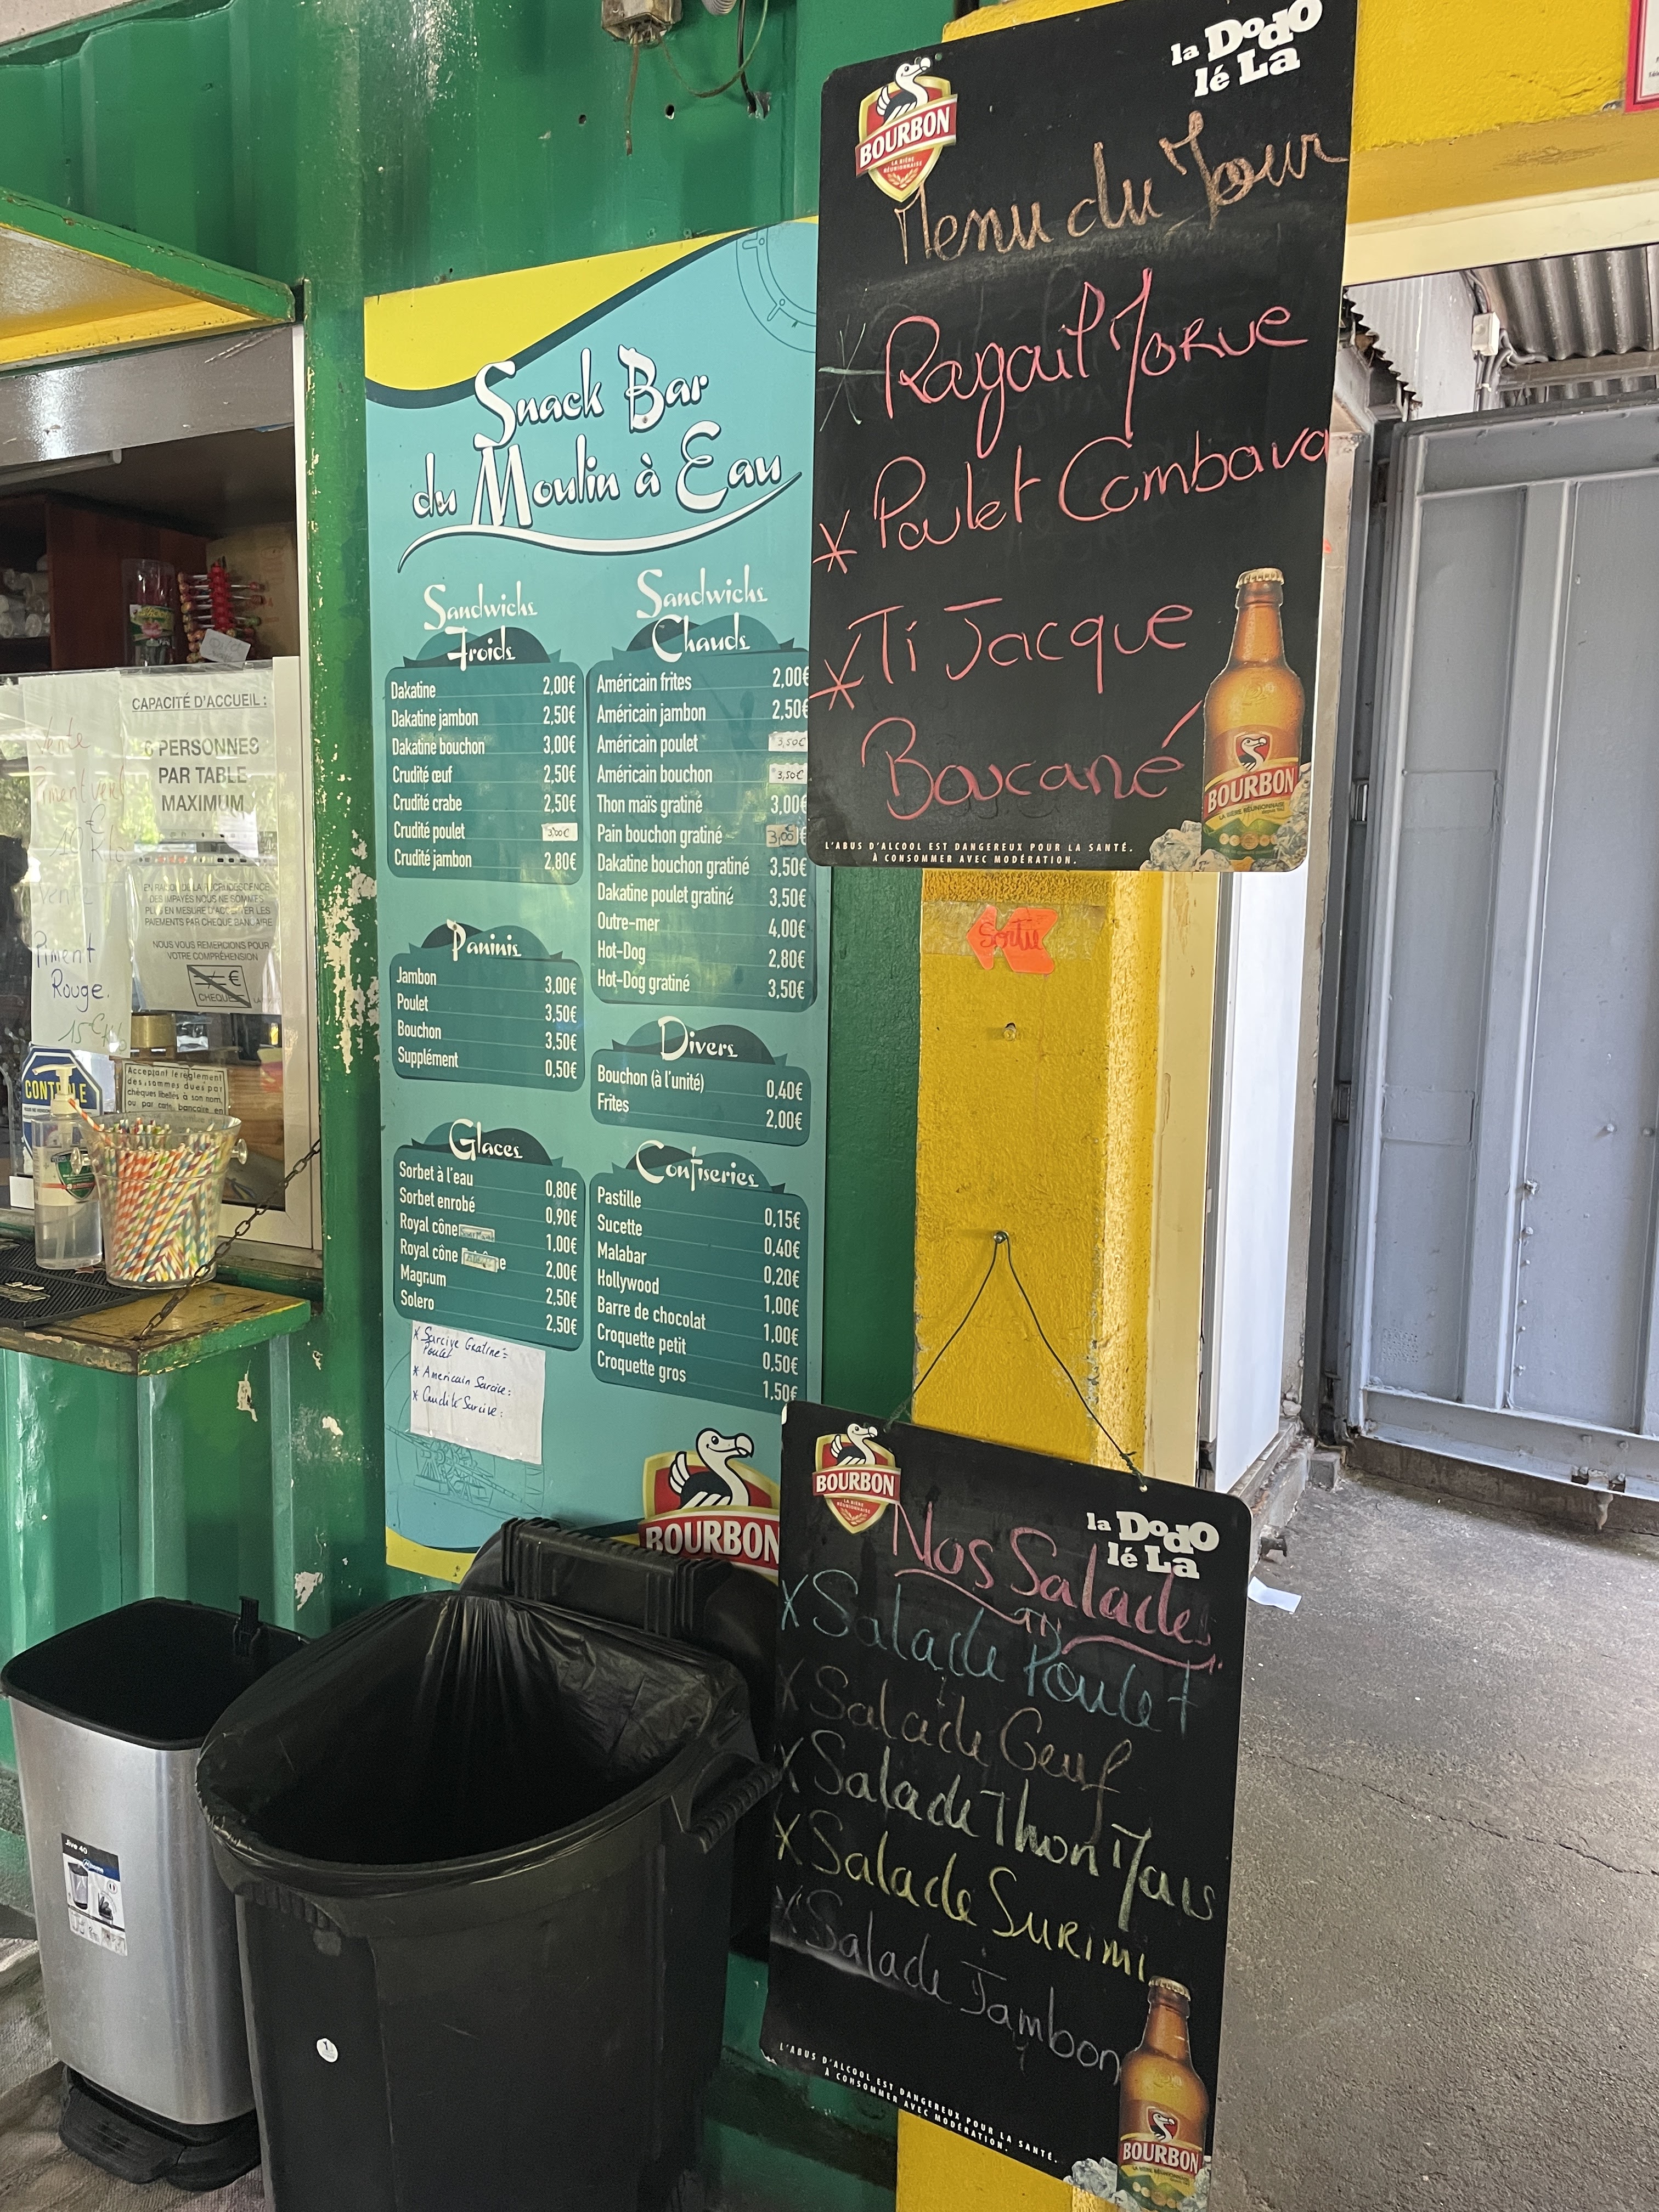 Snack Bar
du Moulin à Eau
Sandwichs
Froids
Dakatine 2,00€
Dakatine jambon 2,50€
Dakatine bouchon 3,00€
Crudité œuf 2,50€
Crudité crabe 2,50€
Crudité poulet 3,00€
Crudité jambon 2,80€
Paninis
Jambon 3,00€
Poulet 3,50€
Bouchon 3,50€
Supplément 0,50€
Glaces
Sorbet à l'eau 0,80€
Sorbet enrobé 0,90€
Royal cône 1,00€
Royal cône 2,00€
Magnum 2,50€
Solero 2,50€
* Sarcive Gratiné =
Poulet
* Americain Sarcive :
* Crudité Sarcive :
Sandwichs
Chauds
Américain frites 2,00€
Américain jambon 2,50€
Américain poulet 3,50€
Américain bouchon 3,50€
Thon maïs gratiné 3,00€
Pain bouchon gratiné 3,00€
Dakatine bouchon gratiné 3,50€
Dakatine poulet gratiné 3,50€
Outre-mer 4,00€
Hot-Dog 2,80€
Hot-Dog gratiné 3,50€
Divers
Bouchon (à l'unité) 0,40€
Frites 2,00€
Confiseries
Pastille 0,15€
Sucette 0,40€
Malabar 0,20€
Hollywood 1,00€
Barre de chocolat 1,00€
Croquette petit 0,50€
Croquette gros 1,50€
BOURBON
BOURBON
LA BIÈRE
RÉUNIONNAISE
la Dodo
lé La
Menu du Jour
* Ragait Morue
* Poulet Combava
* Ti Jacque
Boucané
BOURBON
LA BIÈRE RÉUNIONNAISE
L'ABUS D'ALCOOL EST DANGEREUX POUR LA SANTÉ.
À CONSOMMER AVEC MODÉRATION.
Sortie
BOURBON
LA BIÈRE
RÉUNIONNAISE
la Dodo
lé La
Nos Salades
* Salade Poulet
* Salade Oeuf
* Salade Thon Maïs
* Salade Surimi
* Salade Jambon
BOURBON
L'ABUS D'ALCOOL EST DANGEREUX POUR LA SANTÉ.
À CONSOMMER AVEC MODÉRATION.
CAPACITÉ D'ACCUEIL :
6 PERSONNES
PAR TABLE
MAXIMUM
EN RAISON DE LA RECRUDESCENCE
DES IMPAYES NOUS NE SOMMES
PLUS EN MESURE D'ACCEPTER LES
PAIEMENTS PAR CHEQUE BANCAIRE
NOUS VOUS REMERCIONS POUR
VOTRE COMPRÉHENSION
€
CHEQUES
Vente
Piment vert
10
Vente
Piment
Rouge.
15€
CONTRÔLE
Acceptant le règlement
des sommes dues par
chèques libellés à son nom,
ou par carte bancaire en
Jive 40